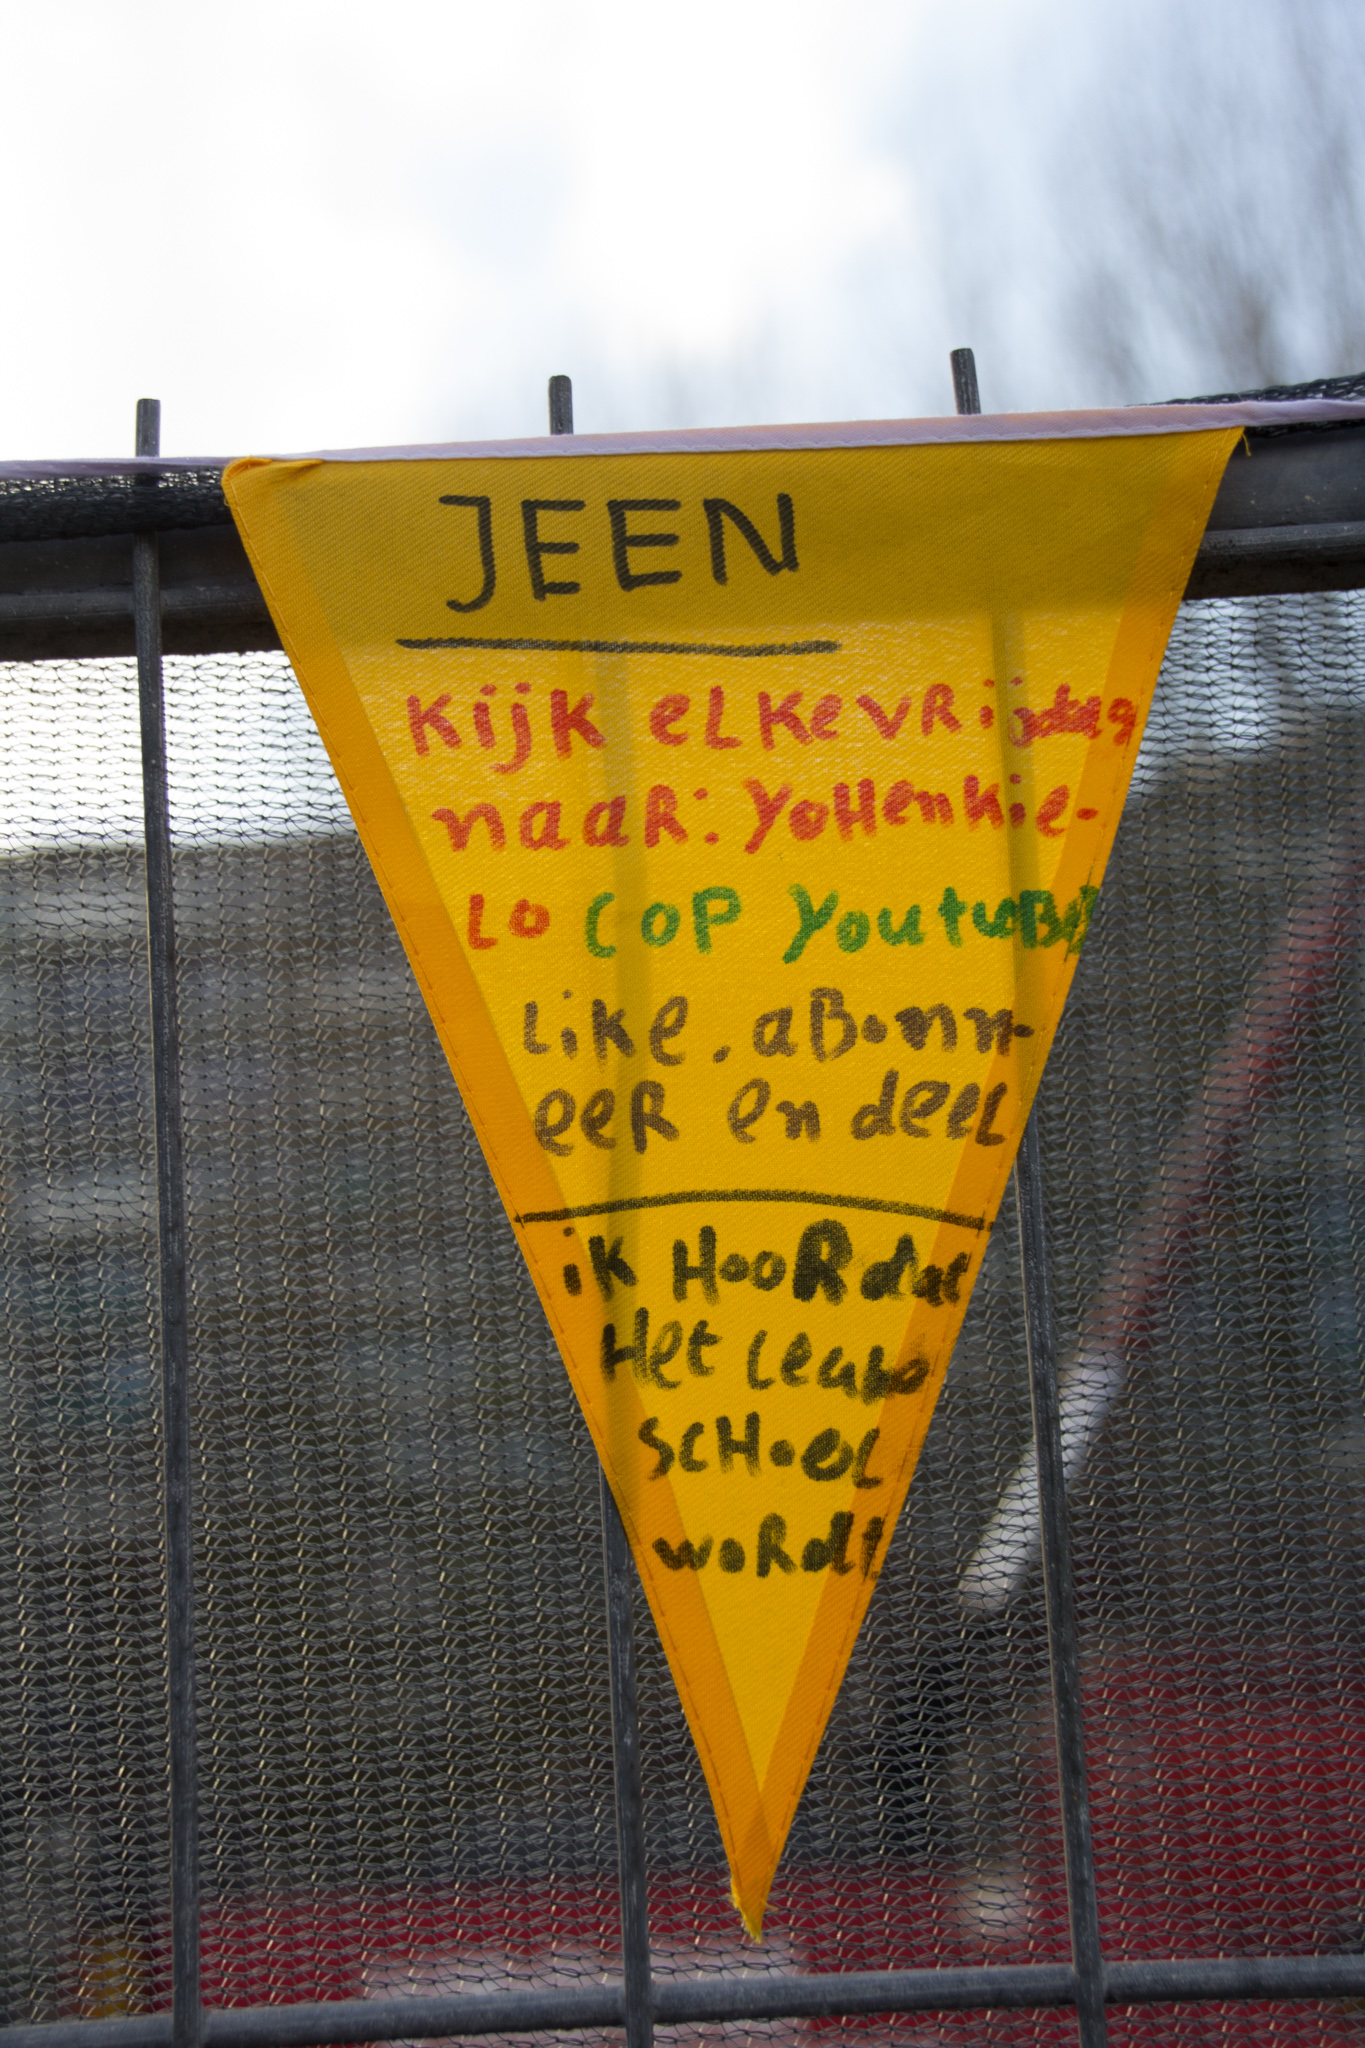 JEEN
Kijk eLKe VRijdag
naaR: YoHenkie-
Lo COP Youtube
Like. aBonn-
eeR en deeL
ik HooR dat
Het Leuko
SCHooL
woRdt